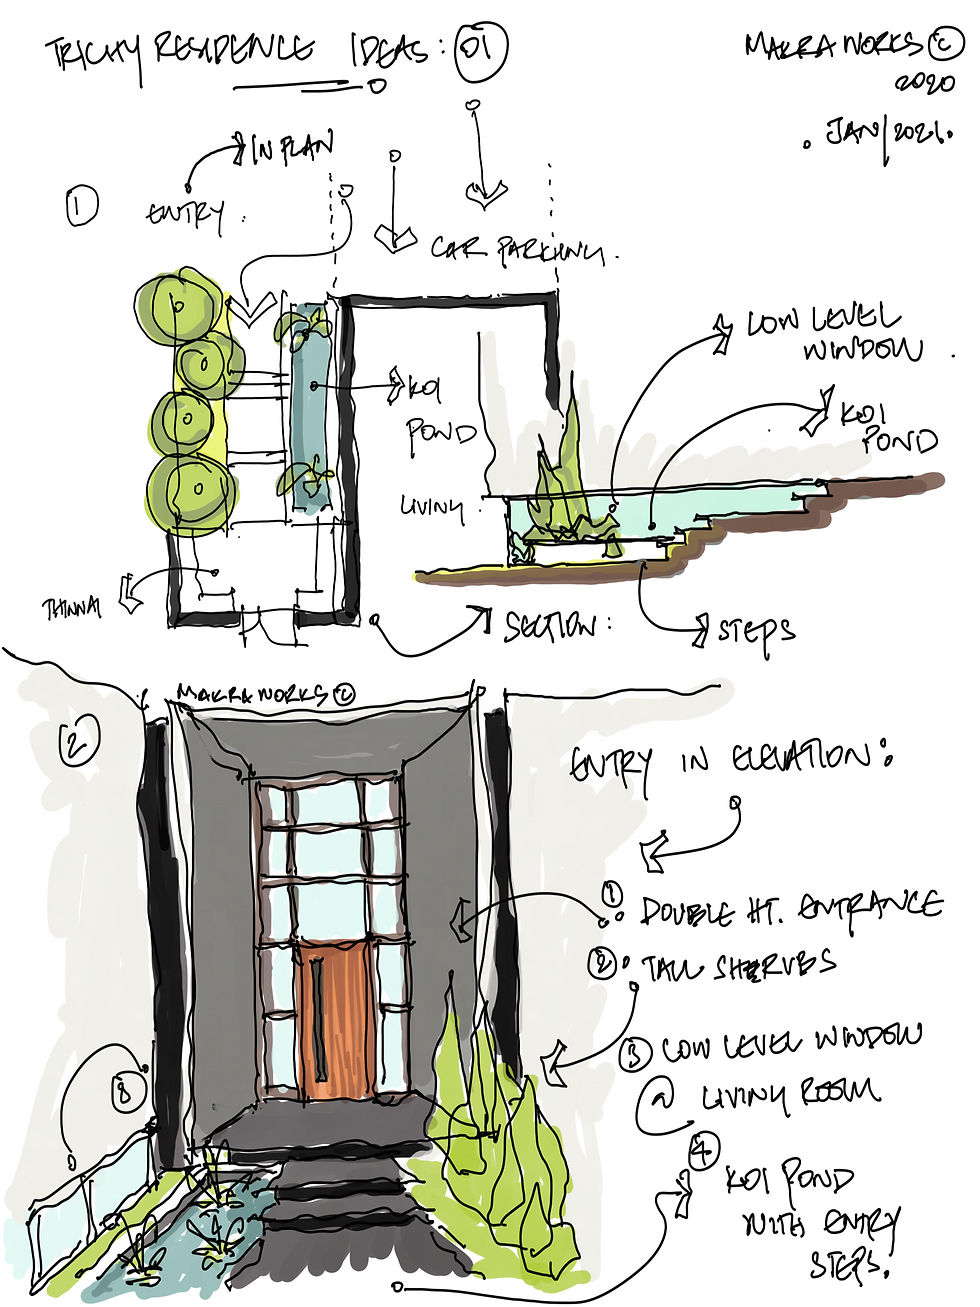 TRICHY RESIDENCE IDEAS: 01
MAKRA WORKS ©
2020
. JAN/2021.
IN PLAN
1
ENTRY .
CAR PARKING .
LOW LEVEL
WINDOW .
KOI
POND
KOI
POND
LIVING .
THINNAI
SECTION :
STEPS
MAKRA WORKS ©
2
ENTRY IN ELEVATION :
1 : DOUBLE HT. ENTRANCE
2 : TALL SHRUBS
3 LOW LEVEL WINDOW
@ LIVING ROOM
4 KOI POND
WITH ENTRY
STEPS.
8